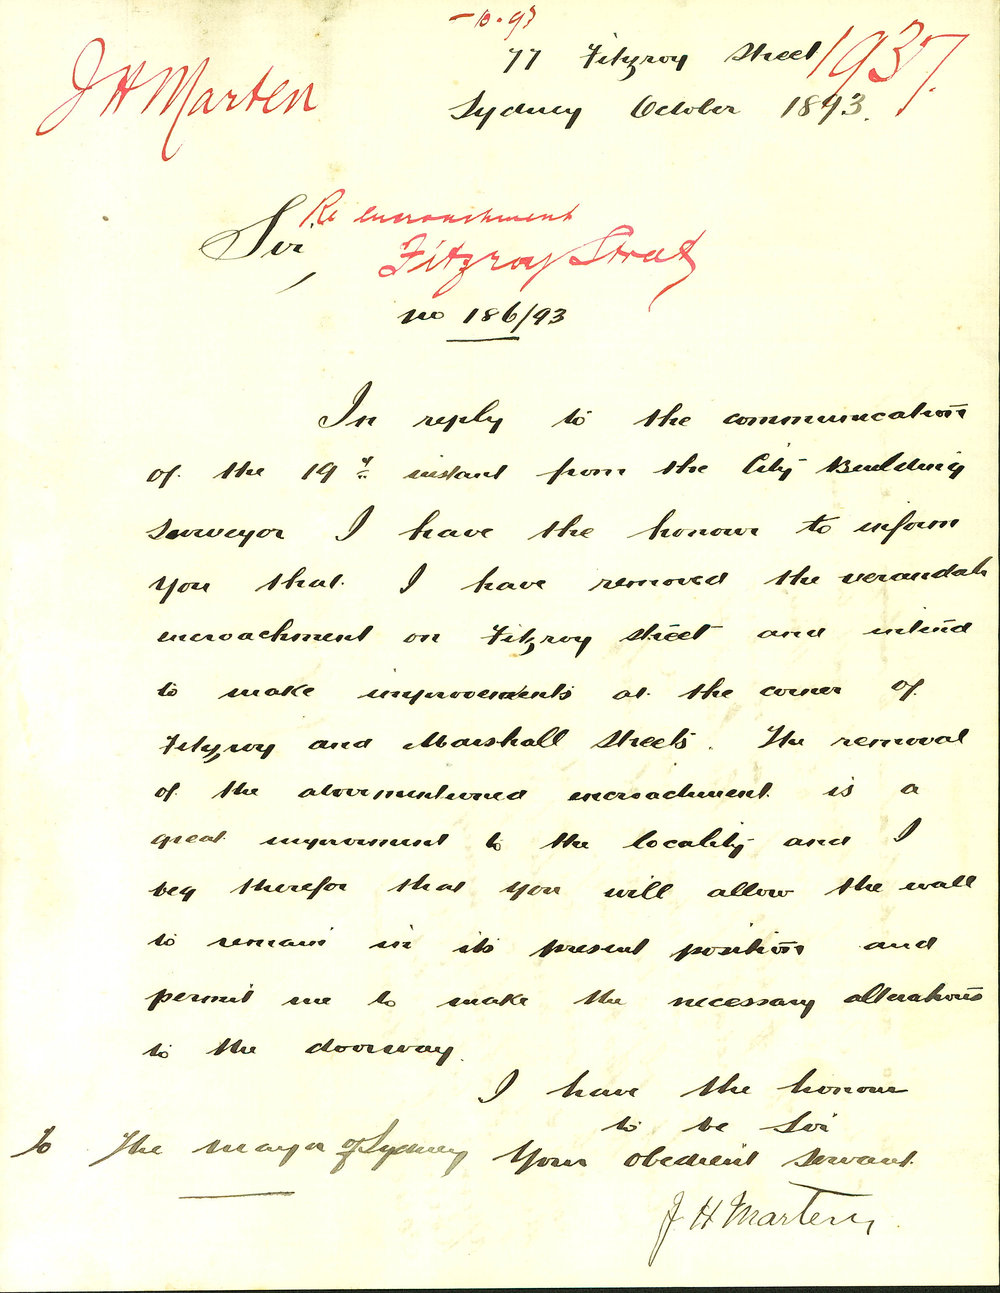 - 10.93
77 Fitzroy Street 1937.
J H Marten
Sydney October 1893.
Re encroachment
Sir,
Fitzroy Street
no 186/93
In reply to the communication
of the 19th instant from the City Building
Surveyor I have the honour to inform
you that I have removed the verandah
encroachment on Fitzroy street and intend
to make improvements at the corner of
Fitzroy and Marshall Streets. The removal
of the abovementioned encroachment is a
great improvement to the locality and I
beg therefor that you will allow the wall
to remain in its present position and
permit me to make the necessary alterations
to the doorway.
I have the honour
to be Sir
To The mayor of Sydney Your obedient servant
J H Marten